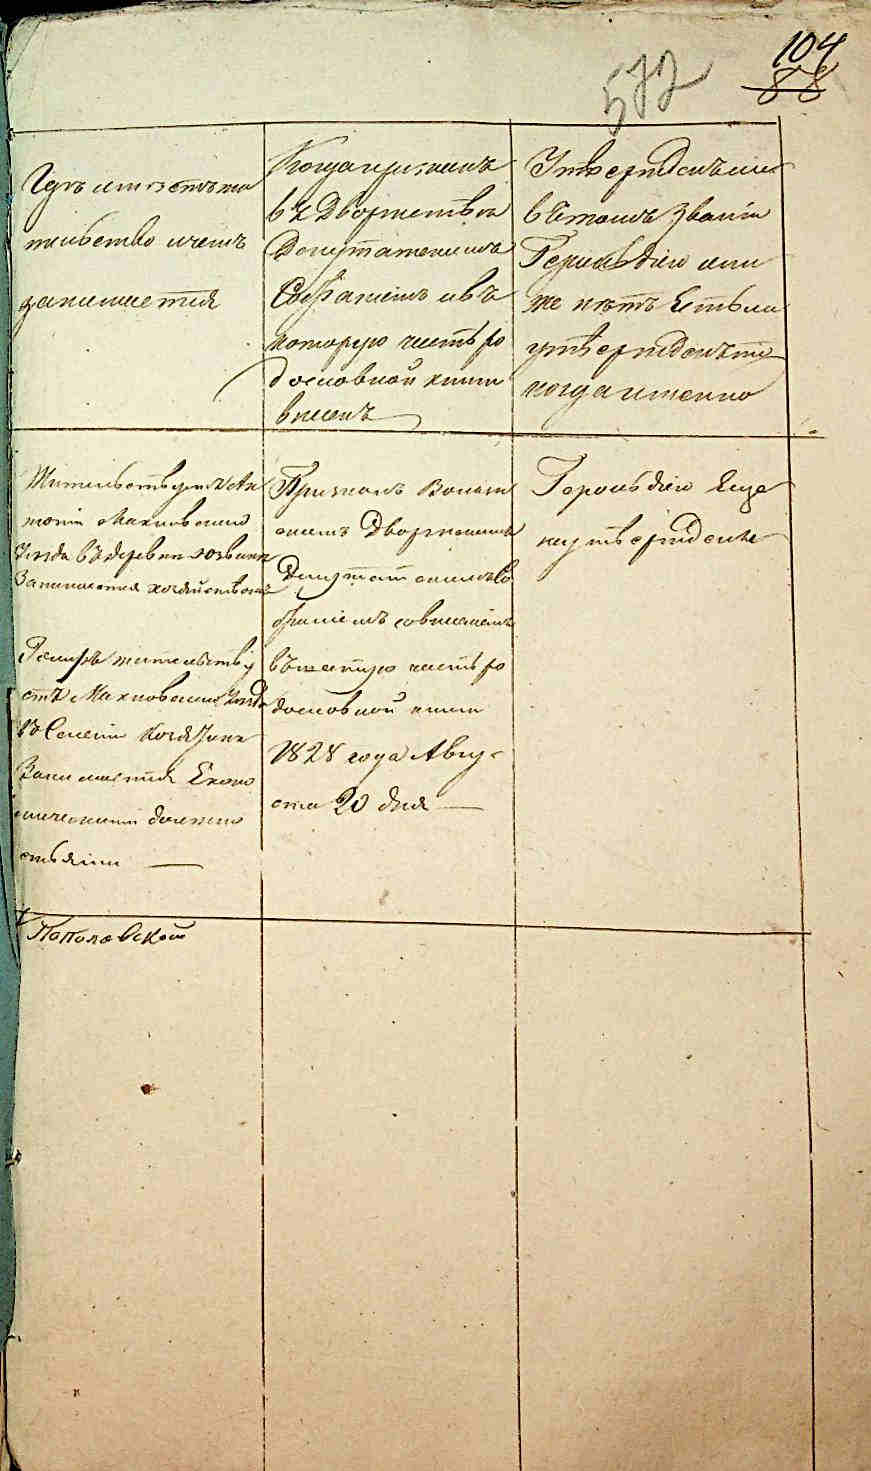 104
88
572
Гдѣ имѣетъ жи
тельство и чемъ
занимается
Когда признанъ
въ Дворянствѣ
Депутатскимъ
Собраніемъ и въ
которую часть ро
дословной книги
внесенъ
Утвержденъ ли
в етомъ званіи
Герольдіею или
же нѣтъ Естьли
утвержденъ то
когда именно
Жительствуетъ
Махновского
уѣзда въ деревни
Занимается хозяйствомъ
жительству
етъ Махновского уѣзда
въ Селеніи
Занимается Еконо
мическими должно
стьями
Признанъ Волын
скимъ Дворянскимъ
Депутатскимъ Со
браніемъ со внесеніемъ
въ часть ро
дословной книги
1828 года Авгу-
ста 20 дня
Герольдіею Еще
не утвержденъ